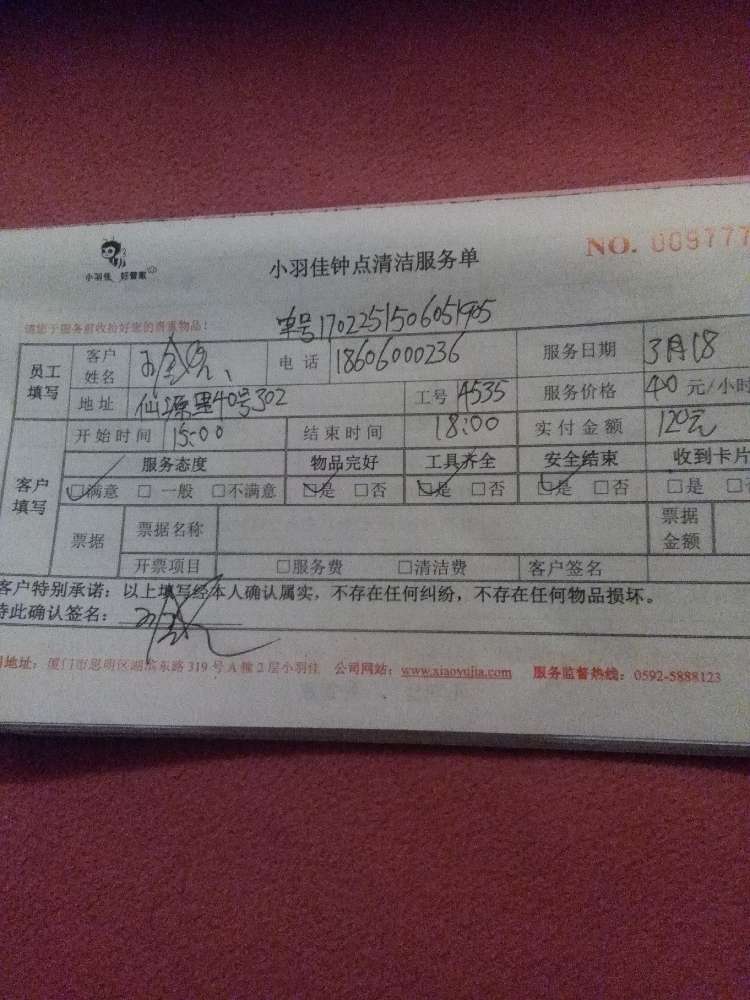 小羽佳 好管家
小羽佳钟点清洁服务单
NO. 009777
请您于服务前收拾好您的贵重物品!
单号1702251506051905
员工填写 客户姓名 电话 18606000236 服务日期 3月18
地址 仙源里40号302 工号 4535 服务价格 40 元/小时
客户填写 开始时间 15:00 结束时间 18:00 实付金额 120元
服务态度 物品完好 工具齐全 安全结束 收到卡片
☑满意 □ 一般 □不满意 ☑是 □否 ☑是 □否 ☑是 □否 □是 □否
票据 票据名称 票据金额
开票项目 □服务费 □清洁费 客户签名
客户特别承诺:以上填写经本人确认属实,不存在任何纠纷,不存在任何物品损坏。
特此确认签名:
地址:厦门市思明区湖滨东路319号A幢2层小羽佳 公司网站:www.xiaoyujia.com 服务监督热线:0592-5888123